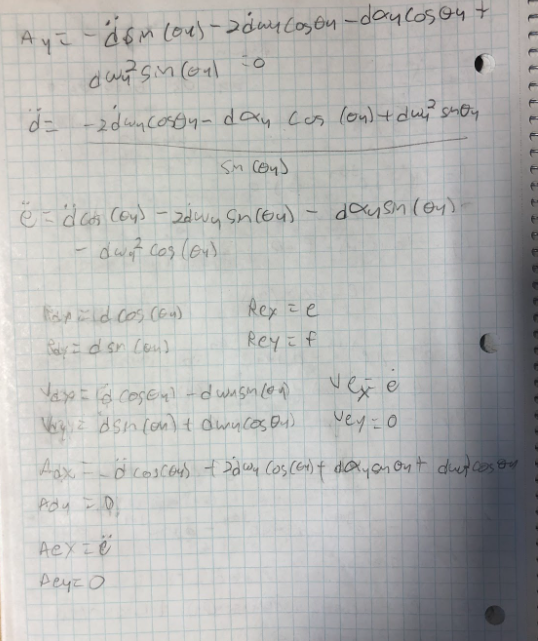 Ay = -d̈ sin(θ4) - 2ḋω4 cosθ4 - dα4 cosθ4 +
dω4² sin(θ4) = 0
d̈ = -2ḋω4 cosθ4 - dα4 cos(θ4) + dω4² sinθ4
sin(θ4)
ë = d̈ cos(θ4) - 2ḋω4 sin(θ4) - dα4 sin(θ4)
- dω4² cos(θ4)
Rdx = d cos(θ4) Rex = e
Rdy = d sin(θ4) Rey = f
Vdx = ḋ cosθ4) - dω4 sin(θ4) Vex = ė
Vdy = ḋ sin(θ4) + dω4 cosθ4) Vey = 0
Adx = -d̈ cos(θ4) + 2ḋω4 cos(θ4) + dα4 sinθ4 + dω4² cosθ4
Ady = 0,
Aex = ë
Aey = 0